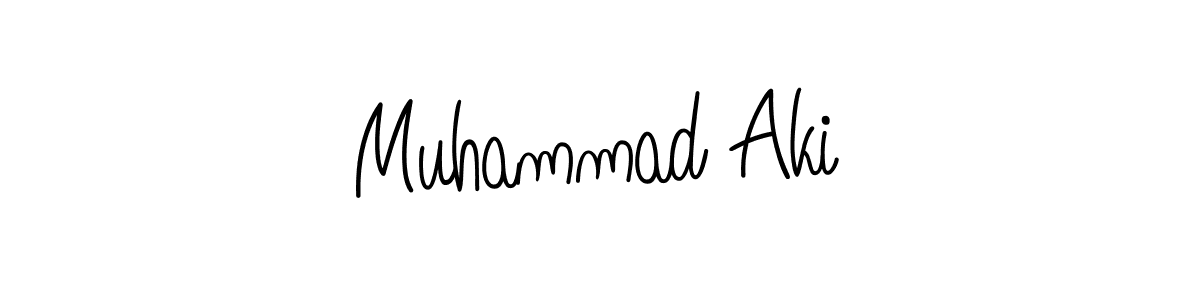 Muhammad Aki